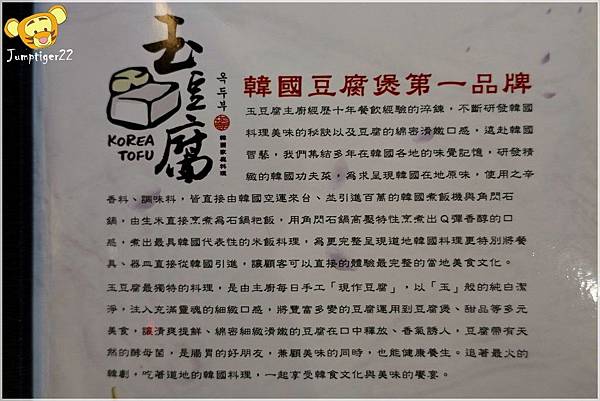 Jumptiger22
玉豆腐
옥두부
韓國家庭料理
KOREA
TOFU
韓國豆腐煲第一品牌
玉豆腐主廚經歷十年餐飲經驗的淬鍊，不斷研發韓國
料理美味的秘訣以及豆腐的綿密滑嫩口感，遠赴韓國
習藝，我們集結多年在韓國各地的味覺記憶，研發精
緻的韓國功夫菜，為求呈現韓國在地原味，使用之辛
香料、調味料，皆直接由韓國空運來台、並引進百萬的韓國煮飯機與角閃石
鍋，由生米直接烹煮為石鍋粑飯，用角閃石鍋高壓特性烹煮出Q彈香醇的口
感，煮出最具韓國代表性的米飯料理，為更完整呈現道地韓國料理更特別將餐
具、器皿直接從韓國引進，讓顧客可以直接的體驗最完整的當地美食文化。
玉豆腐最獨特的料理，是由主廚每日手工「現作豆腐」，以「玉」般的純白潔
淨，注入充滿靈魂的細緻口感，將豐富多變的豆腐運用到豆腐煲、甜品等多元
美食，讓清爽提鮮、綿密細緻滑嫩的豆腐在口中釋放、香氣誘人，豆腐帶有天
然的酵母菌，是腸胃的好朋友，兼顧美味的同時，也能健康養生。追著最火的
韓劇，吃著道地的韓國料理，一起享受韓食文化與美味的饗宴。